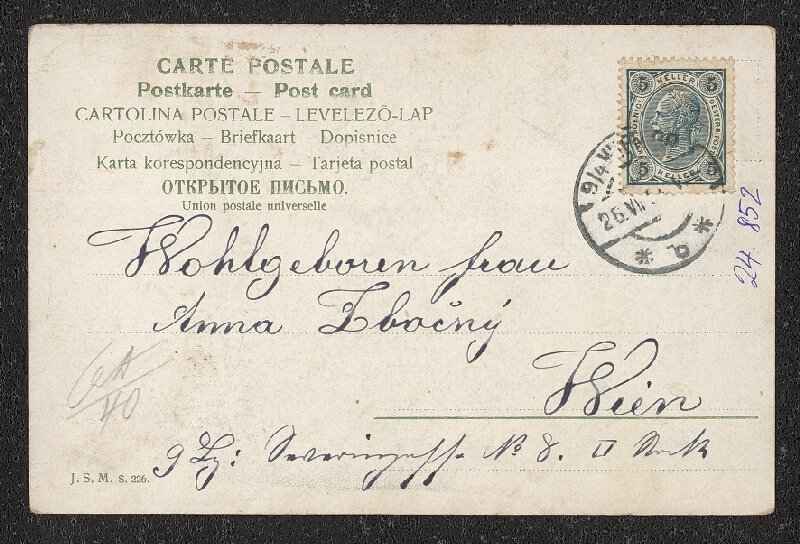 CARTE POSTALE
Postkarte – Post card
CARTOLINA POSTALE – LEVELEZÖ-LAP
Pocztówka – Briefkaart – Dopisnice
Karta korespondencyjna – Tarjeta postal
ОТКРЫТОЕ ПИСЬМО.
Union postale universelle
5 HELLER 5
5 HELLER 5
9/4
26.VI
24 852
Wohlgeboren frau
Anna Zbočný
Wien
40
9 Bz: Severingasse No 8. II Stock
J. S. M. s. 226.